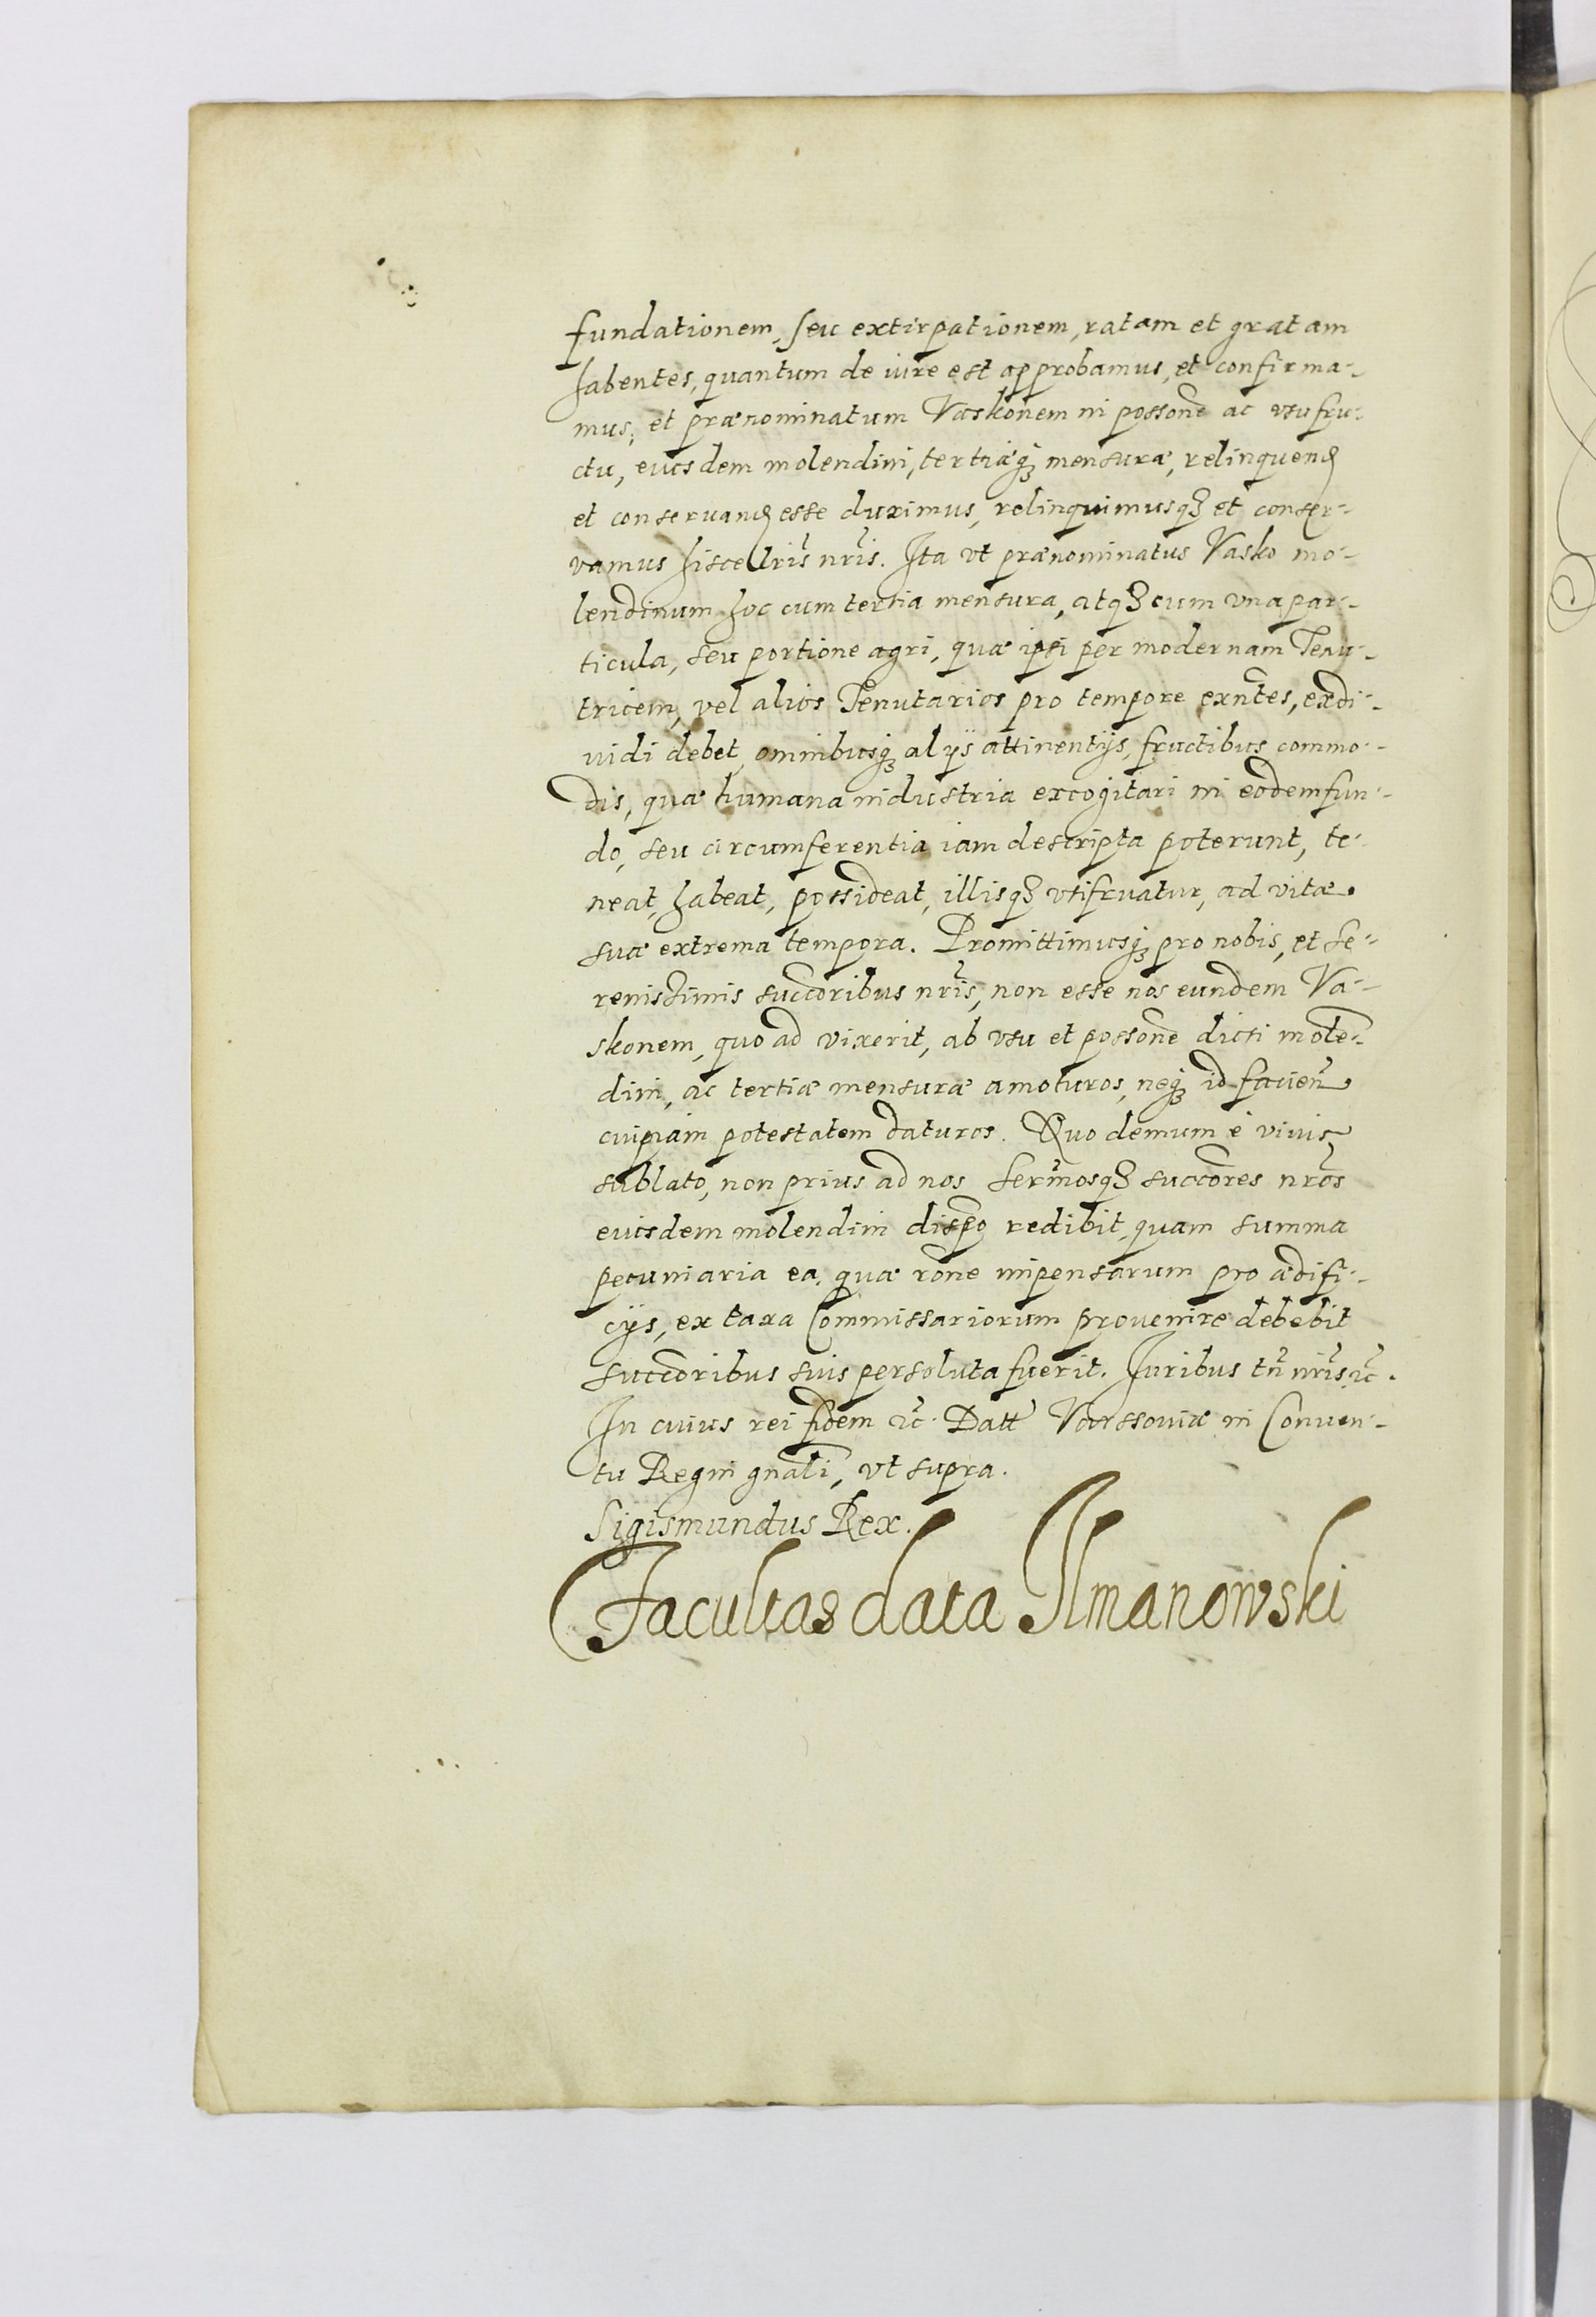 fundationem, seu extirpationem, ratam et gratam
habentes, quantum de iure est approbamus, et confirma-
mus, et prænominatum Vaskonem in possone ac vsufru-
ctu, eiusdem molendini, tertiæq3 mensuræ, relinquend
et conseruand esse duximus, relinquimusq3 et conser-
vamus hisce lris nris. Ita vt prænominatus Vasko mo-
lendinum hoc cum tertia mensura, atq3 cum vna par-
ticula, seu portione agri, quæ ipsi per modernam Tenu-
tricem, vel alios Tenutarios pro tempore exntes, exdi-
uidi debet, omnibusq3 alijs attinentijs, fructibus commo-
dis, quæ humana industria excogitari in eodem fun-
do, seu circumferentia iam descripta poterunt, te-
neat, habeat, possideat, illisq3 vtifruatur, ad vitæ
suæ extrema tempora. Promittimusq3 pro nobis, et Se-
renissimis succoribus nris, non esse nos eundem Va-
skonem, quo ad vixerit, ab vsu et possone dicti molen-
dini, ac tertiæ mensuræ amoturos, neq3 id facien
cuipiam potestatem daturos. Quo demum è viuis
sublato, non prius ad nos Sermosq3 succores nros
eiusdem molendini dispo redibit, quam summa
pecuniaria ea, quæ rone impensarum pro ædifi-
cijs, ex taxa Commissariorum prouenire debebit
succoribus suis persoluta fuerit. Iuribus tn nris etc.
In cuius rei fidem etc. Datt Varssouiæ in Conuen-
tu Regni gnali, vt supra.
Sigismundus Rex.
Facultas data Ilmanowski